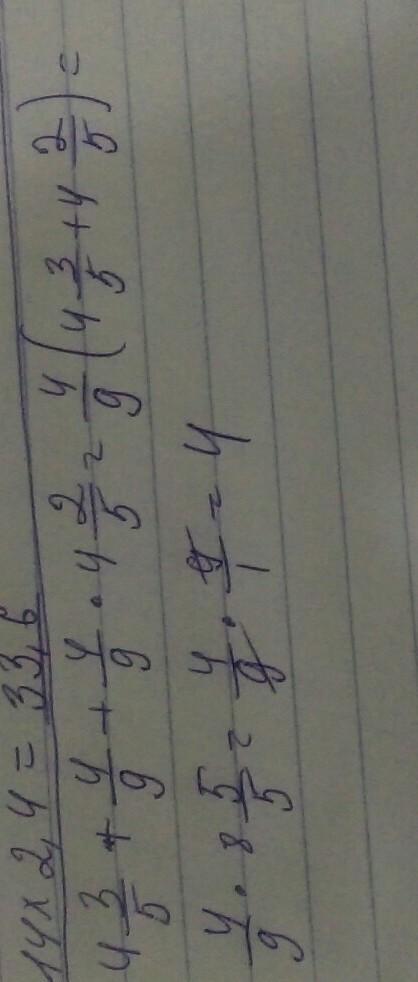 14 × 2,4 = 33,6
4 3/5 + 4/9 + 4/9 · 4 2/5 = 4/9 (4 3/5 + 4 2/5) =
4/9 · 8 5/5 = 4/9 · 9/1 = 4